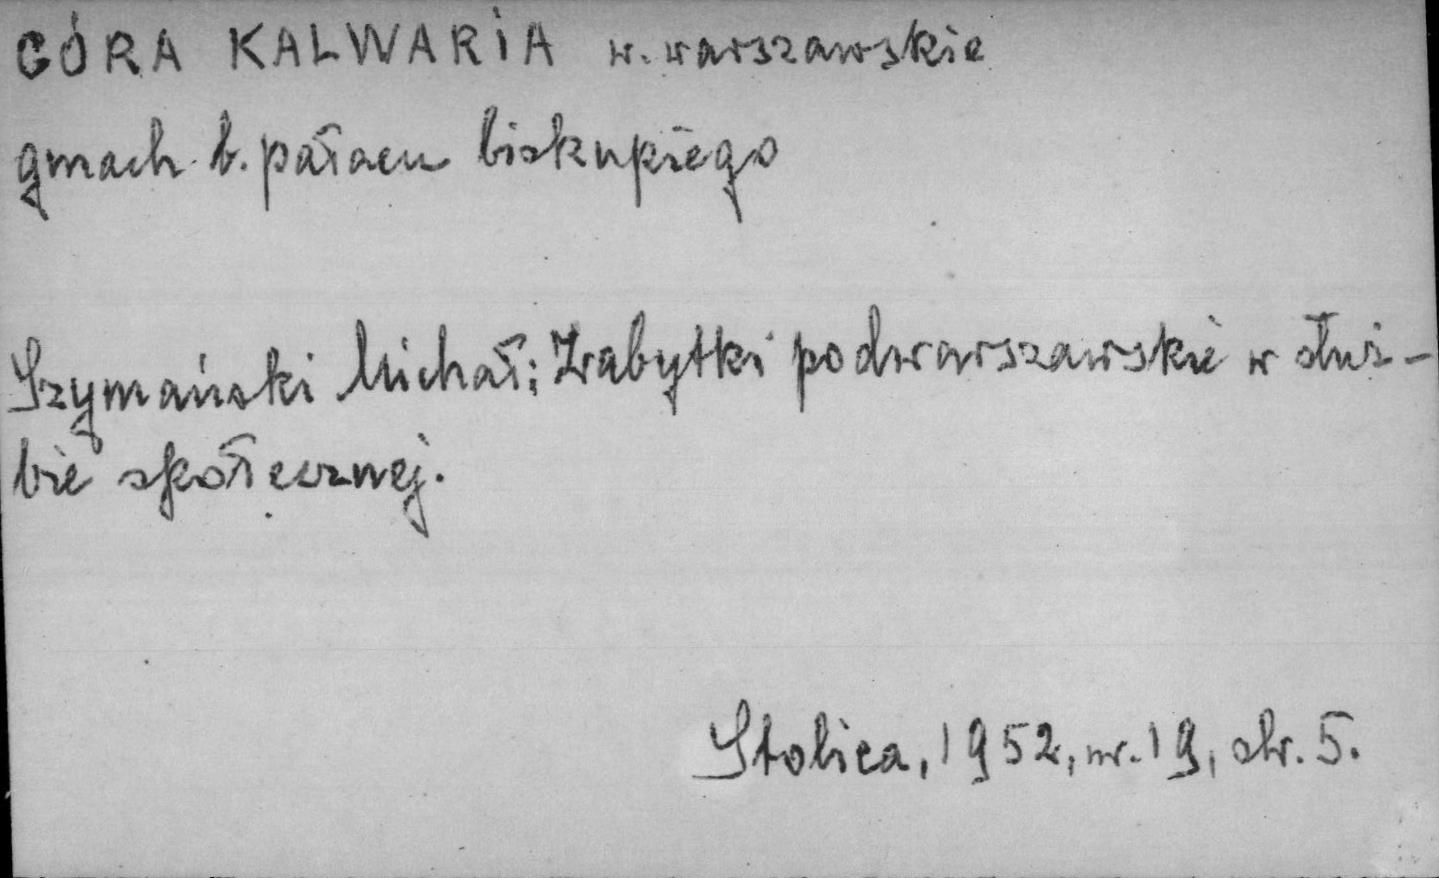 GÓRA KALWARIA w. warszawskie
gmach b. pałacu biskupiego
Szymański Michał: Zabytki podwarszawskie w służ-
bie społecznej.
Stolica, 1952, nr. 19, str. 5.